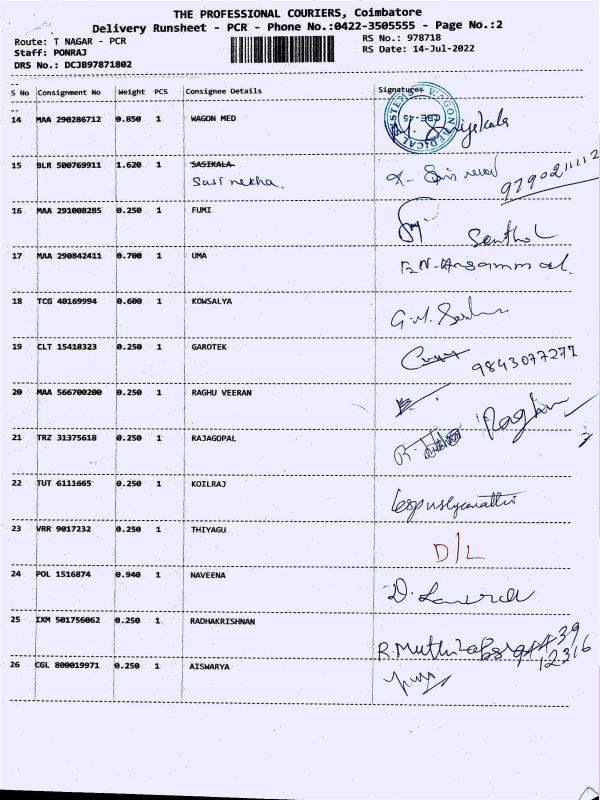 THE PROFESSIONAL COURIERS, Coimbatore
Delivery Runsheet - PCR - Phone No.:0422-3505555 - Page No.:2
Route: T NAGAR - PCR RS No.: 978718
Staff: PONRAJ RS Date: 14-Jul-2022
DRS No.: DCJB97871802
S No Consignment No Weight PCS Consignee Details Signature
14 MAA 290286712 0.850 1 WAGON MED
15 BLR 500769911 1.620 1 SASIKALA 9790211112
Sasi rekha.
16 MAA 291008285 0.250 1 FUMI Senthol
17 MAA 290842411 0.700 1 UMA
18 TCG 40169994 0.600 1 KOWSALYA
19 CLT 15418323 0.250 1 GAROTEK 9843077277
20 MAA 566700200 0.250 1 RAGHU VEERAN
21 TRZ 31375618 0.250 1 RAJAGOPAL
22 TUT 6111665 0.250 1 KOILRAJ
23 VRR 9017232 0.250 1 THIYAGU D/L
24 POL 1516874 0.940 1 NAVEENA
25 IXM 501756062 0.250 1 RADHAKRISHNAN
26 CGL 800019971 0.250 1 AISWARYA